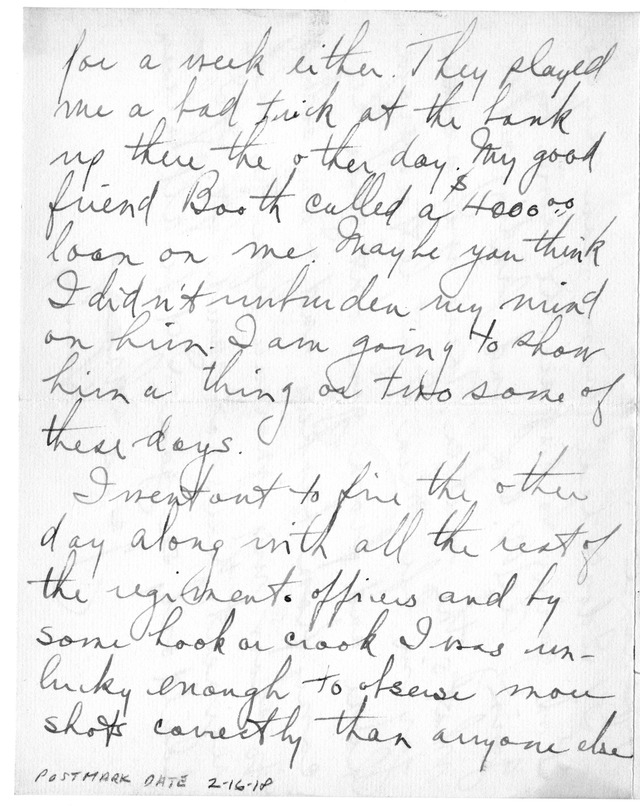 for a week either. They played
me a bad trick at the bank
up there the other day. My good
friend Booth called a $4000⁰⁰
loan on me. Maybe you think
I didn't unburden my mind
on him. I am going to show
him a thing or two some of
these days.
I went out to fire the other
day along with all the rest of
the regiment. officers and by
some hook or crook I was un-
lucky enough to observe more
shots correctly than anyone else
POSTMARK DATE 2-16-18